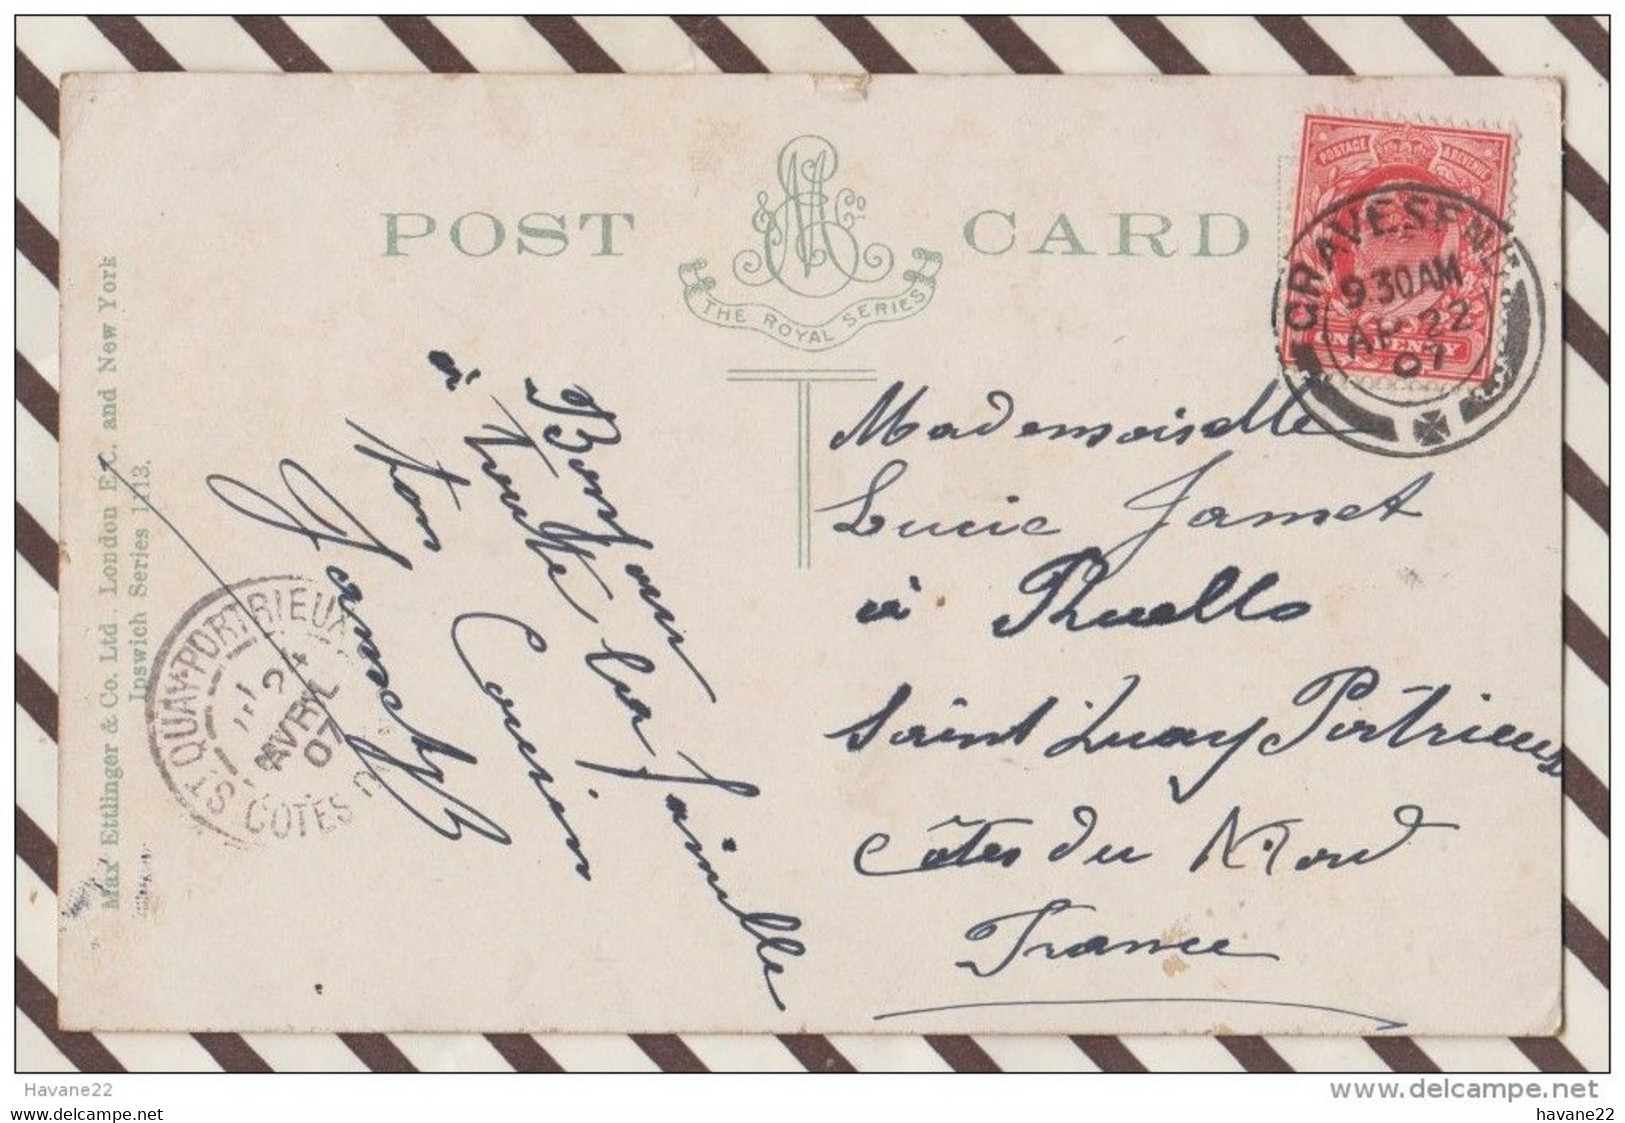 POST CARD
THE ROYAL SERIES
POSTAGE & REVENUE
ONE PENNY
GRAVESEND
9.30AM
AP 22
07
Max Ettlinger & Co. Ltd. London E.C. and New York
Ipswich Series 1113.
ST QUAY-PORTRIEUX
24
AVRIL
07
COTES D
Bonjour
à toute la famille
ton Cousin
Jamet
Mademoiselle
Lucie Jamet
à
Saint Quay Portrieux
Côtes du Nord
France
Havane22
www.delcampe.net
havane22
havane22